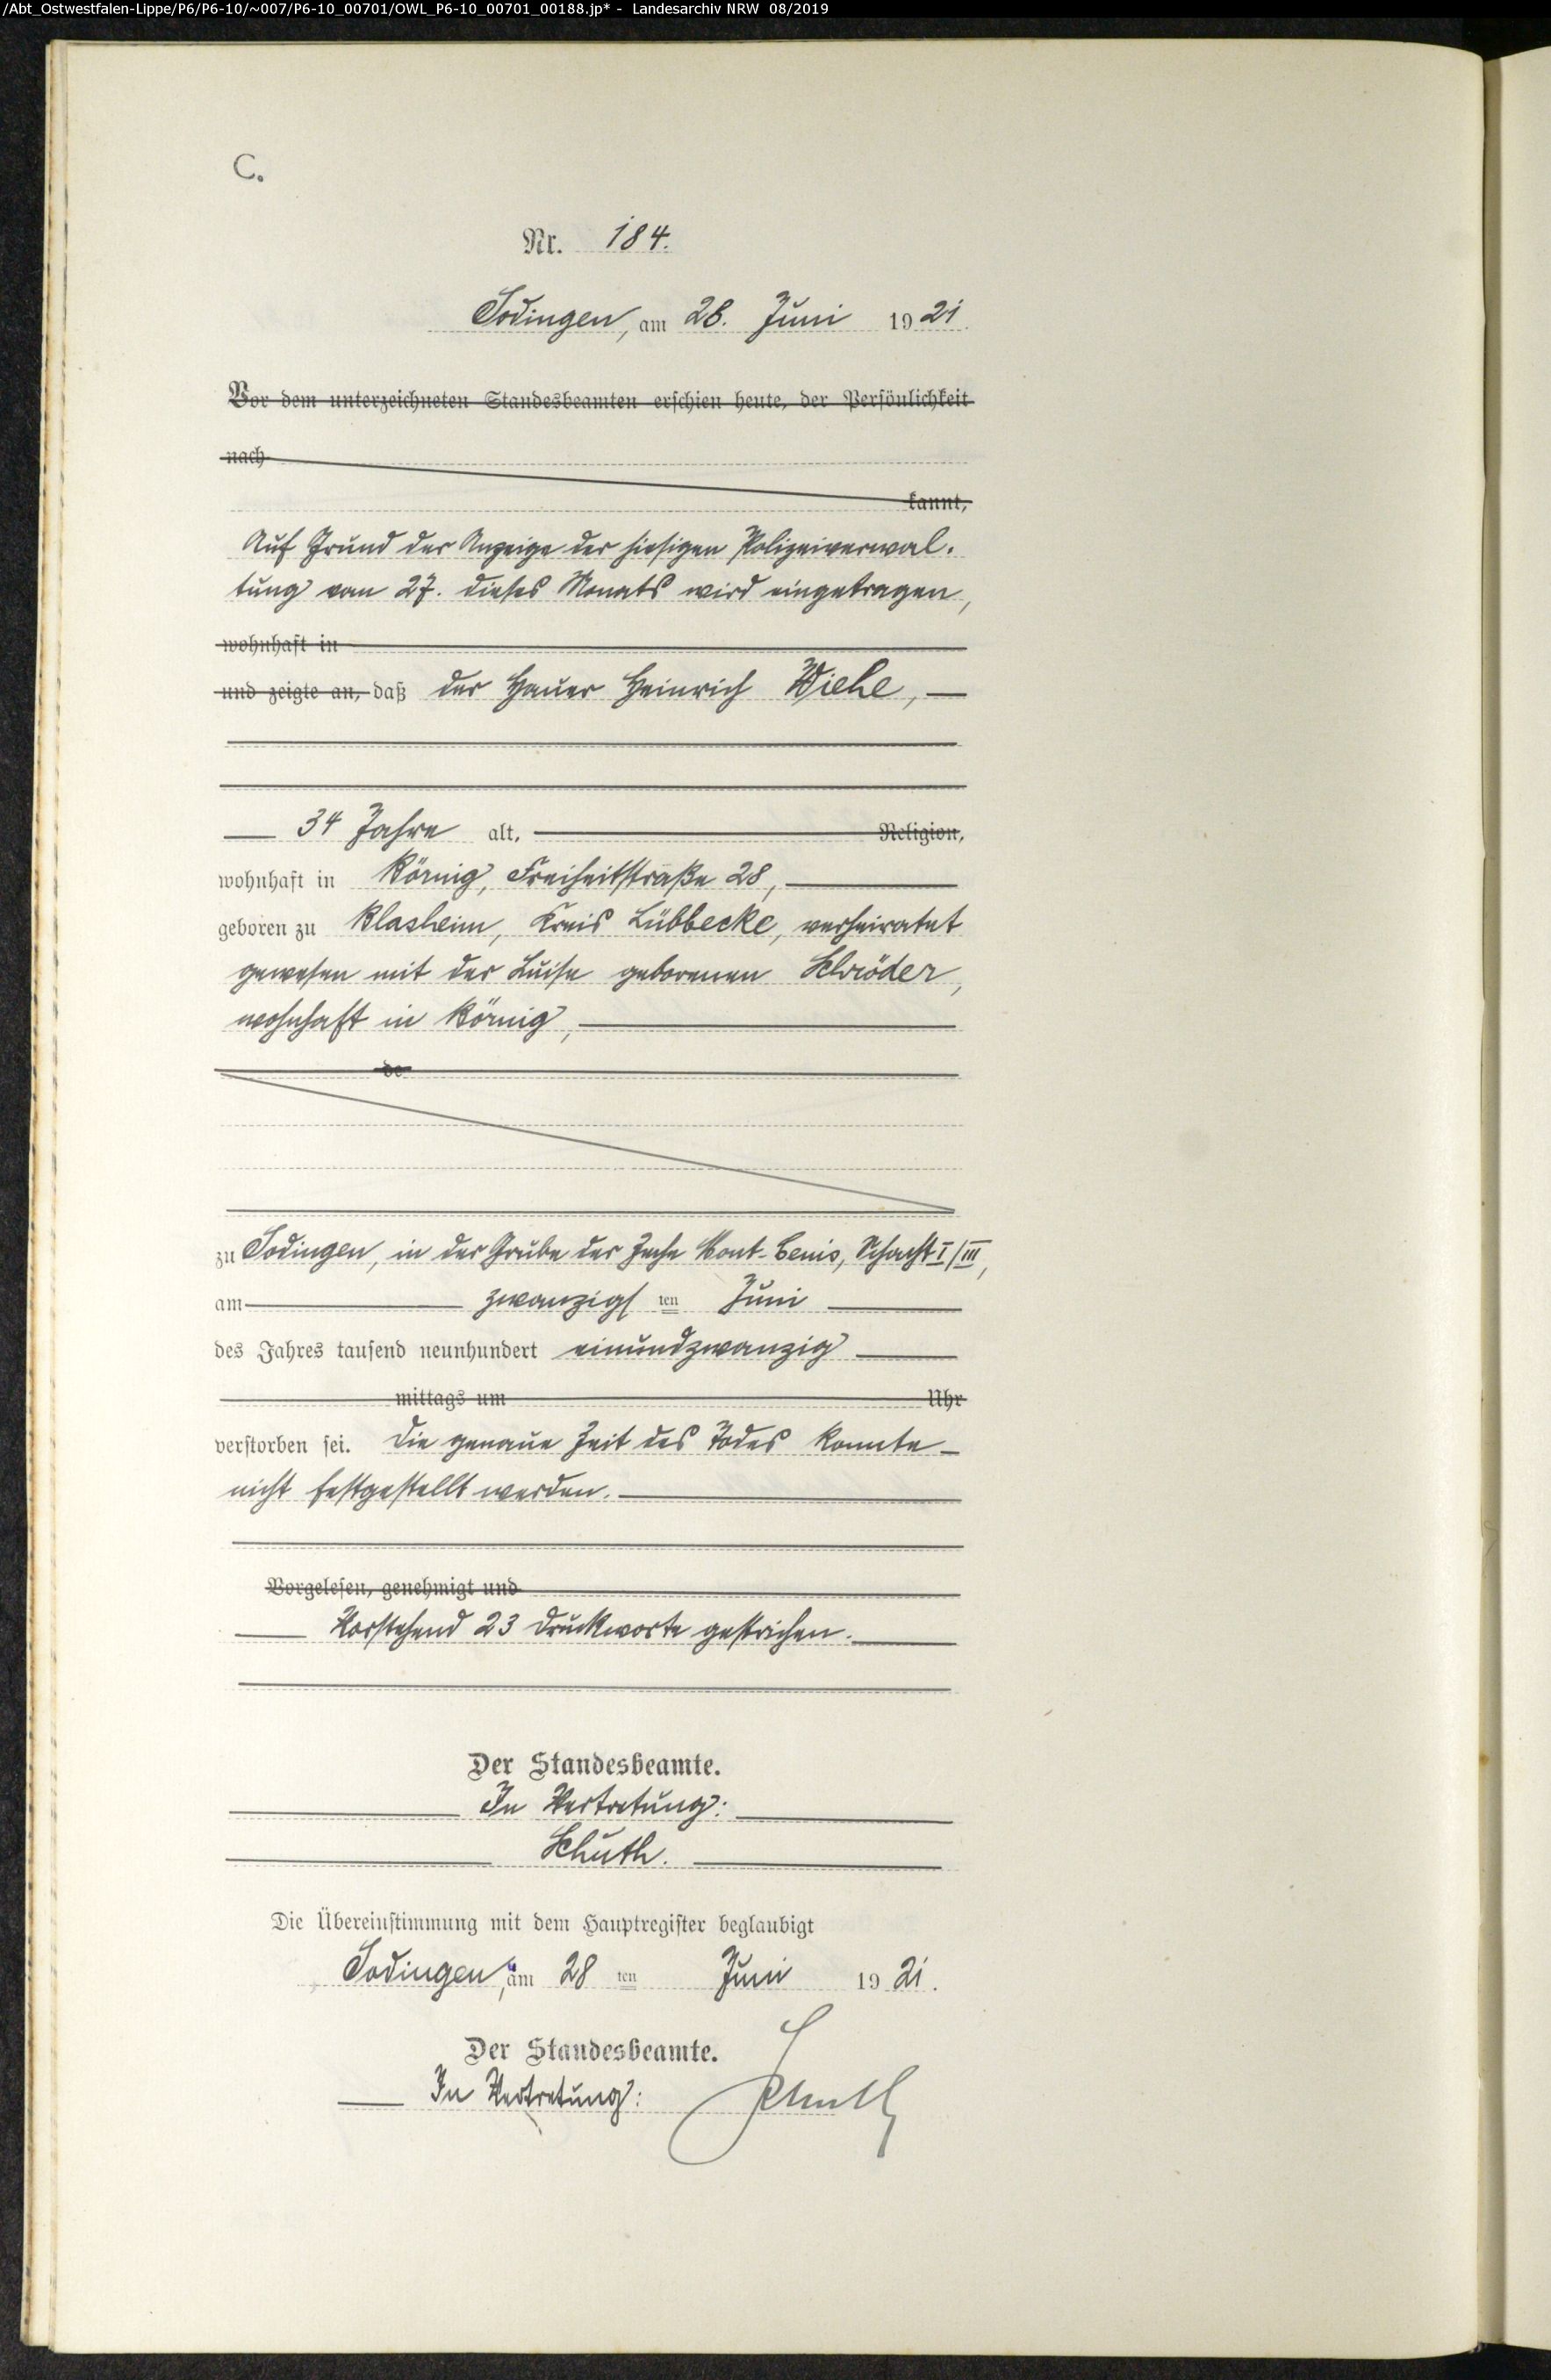 /Abt_Ostwestfalen-Lippe/P6/P6-10/~007/P6-10_00701/OWL_P6-10_00701_00188.jp* - Landesarchiv NRW 08/2019
C.
Nr. 184.
Sodingen, am 28. Juni 1921.
Vor dem unterzeichneten Standesbeamten erschien heute, der Persönlichkeit
nach
kannt,
Auf Grund der Anzeige der hiesigen Polizeiverwal-
tung vom 27. dieses Monats wird eingetragen,
wohnhaft in
und zeigte an, daß der Hauer Heinrich Wiehe,
34 Jahre alt, Religion,
wohnhaft in Börnig, Freiheitstraße 28,
geboren zu Blasheim, Kreis Lübbecke, verheiratet
gewesen mit der Luise geborenen Schröder,
wohnhaft in Börnig,
de
zu Sodingen, in der Grube der Zeche Mont-Cenis, Schacht I/III,
am zwanzigsten Juni
des Jahres tausend neunhundert einundzwanzig
mittags um Uhr
verstorben sei. Die genaue Zeit des Todes konnte
nicht festgestellt werden.
Vorgelesen, genehmigt und
Vorstehend 23 Druckworte gestrichen.
Der Standesbeamte.
In Vertretung:
Schuth.
Die Übereinstimmung mit dem Hauptregister beglaubigt
Sodingen, am 28 ten Juni 1921.
Der Standesbeamte.
In Vertretung: Schuth